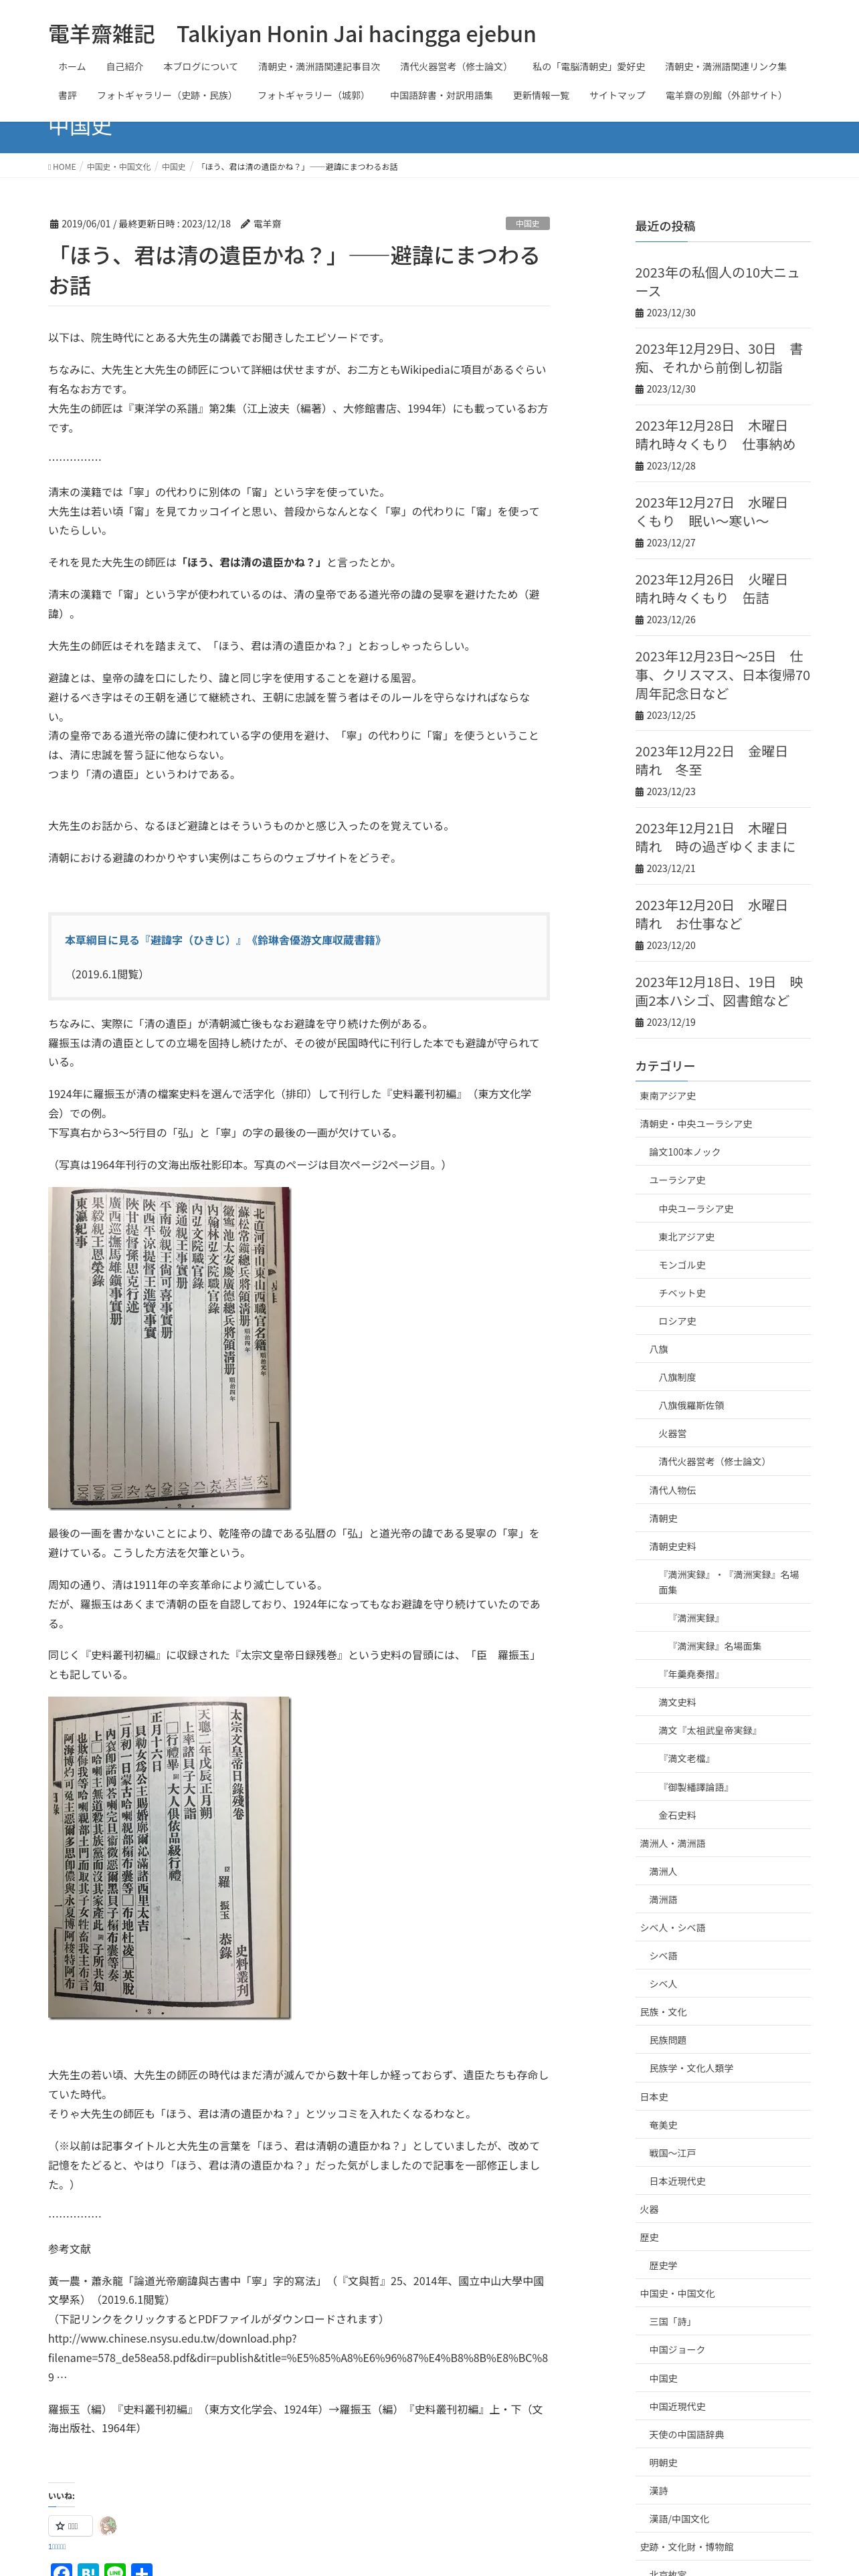 電羊齋雑記　Talkiyan Honin Jai hacingga ejebun
ホーム　自己紹介　本ブログについて　清朝史・満洲語関連記事目次　清代火器営考（修士論文）　私の「電脳清朝史」愛好史　清朝史・満洲語関連リンク集
書評　フォトギャラリー（史跡・民族）　フォトギャラリー（城郭）　中国語辞書・対訳用語集　更新情報一覧　サイトマップ　電羊齋の別館（外部サイト）
中国史
HOME / 中国史・中国文化 / 中国史 / 「ほう、君は清の遺臣かね？」――避諱にまつわるお話
2019/06/01 / 最終更新日時 : 2023/12/18　電羊齋　中国史
「ほう、君は清の遺臣かね？」――避諱にまつわる
お話
以下は、院生時代にとある大先生の講義でお聞きしたエピソードです。
ちなみに、大先生と大先生の師匠について詳細は伏せますが、お二方ともWikipediaに項目があるぐらい
有名なお方です。
大先生の師匠は『東洋学の系譜』第2集（江上波夫（編著）、大修館書店、1994年）にも載っているお方
です。
……………
清末の漢籍では「寧」の代わりに別体の「甯」という字を使っていた。
大先生は若い頃「甯」を見てカッコイイと思い、普段からなんとなく「寧」の代わりに「甯」を使って
いたらしい。
それを見た大先生の師匠は「ほう、君は清の遺臣かね？」と言ったとか。
清末の漢籍で「甯」という字が使われているのは、清の皇帝である道光帝の諱の旻寧を避けたため（避
諱）。
大先生の師匠はそれを踏まえて、「ほう、君は清の遺臣かね？」とおっしゃったらしい。
避諱とは、皇帝の諱を口にしたり、諱と同じ字を使用することを避ける風習。
避けるべき字はその王朝を通じて継続され、王朝に忠誠を誓う者はそのルールを守らなければならな
い。
清の皇帝である道光帝の諱に使われている字の使用を避け、「寧」の代わりに「甯」を使うということ
は、清に忠誠を誓う証に他ならない。
つまり「清の遺臣」というわけである。
大先生のお話から、なるほど避諱とはそういうものかと感じ入ったのを覚えている。
清朝における避諱のわかりやすい実例はこちらのウェブサイトをどうぞ。
本草綱目に見る『避諱字（ひきじ）』《鈴琳舎優游文庫収蔵書籍》
（2019.6.1閲覧）
ちなみに、実際に「清の遺臣」が清朝滅亡後もなお避諱を守り続けた例がある。
羅振玉は清の遺臣としての立場を固持し続けたが、その彼が民国時代に刊行した本でも避諱が守られて
いる。
1924年に羅振玉が清の檔案史料を選んで活字化（排印）して刊行した『史料叢刊初編』（東方文化学
会）での例。
下写真右から3～5行目の「弘」と「寧」の字の最後の一画が欠けている。
（写真は1964年刊行の文海出版社影印本。写真のページは目次ページ2ページ目。）
最後の一画を書かないことにより、乾隆帝の諱である弘暦の「弘」と道光帝の諱である旻寧の「寧」を
避けている。こうした方法を欠筆という。
周知の通り、清は1911年の辛亥革命により滅亡している。
だが、羅振玉はあくまで清朝の臣を自認しており、1924年になってもなお避諱を守り続けていたのであ
る。
同じく『史料叢刊初編』に収録された『太宗文皇帝日録残巻』という史料の冒頭には、「臣　羅振玉」
とも記している。
太宗文皇帝日錄殘卷
臣　羅　振玉　恭錄
史料叢刊
天聰二年戊辰正月朔
大先生の若い頃、大先生の師匠の時代はまだ清が滅んでから数十年しか経っておらず、遺臣たちも存命し
ていた時代。
そりゃ大先生の師匠も「ほう、君は清の遺臣かね？」とツッコミを入れたくなるわなと。
（※以前は記事タイトルと大先生の言葉を「ほう、君は清朝の遺臣かね？」としていましたが、改めて
記憶をたどると、やはり「ほう、君は清の遺臣かね？」だった気がしましたので記事を一部修正しまし
た。）
……………
参考文献
黃一農・蕭永龍「論道光帝廟諱與古書中「寧」字的寫法」（『文與哲』25、2014年、國立中山大學中國
文學系）（2019.6.1閲覧）
（下記リンクをクリックするとPDFファイルがダウンロードされます）
http://www.chinese.nsysu.edu.tw/download.php?
filename=578_de58ea58.pdf&dir=publish&title=%E5%85%A8%E6%96%87%E4%B8%8B%E8%BC%8
9 …
羅振玉（編）『史料叢刊初編』（東方文化学会、1924年）→羅振玉（編）『史料叢刊初編』上・下（文
海出版社、1964年）
いいね:
最近の投稿
2023年の私個人の10大ニュ
ース
2023/12/30
2023年12月29日、30日　書
痴、それから前倒し初詣
2023/12/30
2023年12月28日　木曜日
晴れ時々くもり　仕事納め
2023/12/28
2023年12月27日　水曜日
くもり　眠い～寒い～
2023/12/27
2023年12月26日　火曜日
晴れ時々くもり　缶詰
2023/12/26
2023年12月23日～25日　仕
事、クリスマス、日本復帰70
周年記念日など
2023/12/25
2023年12月22日　金曜日
晴れ　冬至
2023/12/23
2023年12月21日　木曜日
晴れ　時の過ぎゆくままに
2023/12/21
2023年12月20日　水曜日
晴れ　お仕事など
2023/12/20
2023年12月18日、19日　映
画2本ハシゴ、図書館など
2023/12/19
カテゴリー
東南アジア史
清朝史・中央ユーラシア史
論文100本ノック
ユーラシア史
中央ユーラシア史
東北アジア史
モンゴル史
チベット史
ロシア史
八旗
八旗制度
八旗俄羅斯佐領
火器営
清代火器営考（修士論文）
清代人物伝
清朝史
清朝史史料
『満洲実録』・『満洲実録』名場
面集
『満洲実録』
『満洲実録』名場面集
『年羹堯奏摺』
満文史料
満文『太祖武皇帝実録』
『満文老檔』
『御製繙譯論語』
金石史料
満洲人・満洲語
満洲人
満洲語
シベ人・シベ語
シベ語
シベ人
民族・文化
民族問題
民族学・文化人類学
日本史
奄美史
戦国～江戸
日本近現代史
火器
歴史
歴史学
中国史・中国文化
三国「詩」
中国ジョーク
中国史
中国近現代史
天使の中国語辞典
明朝史
漢詩
漢語/中国文化
史跡・文化財・博物館
北京故宮